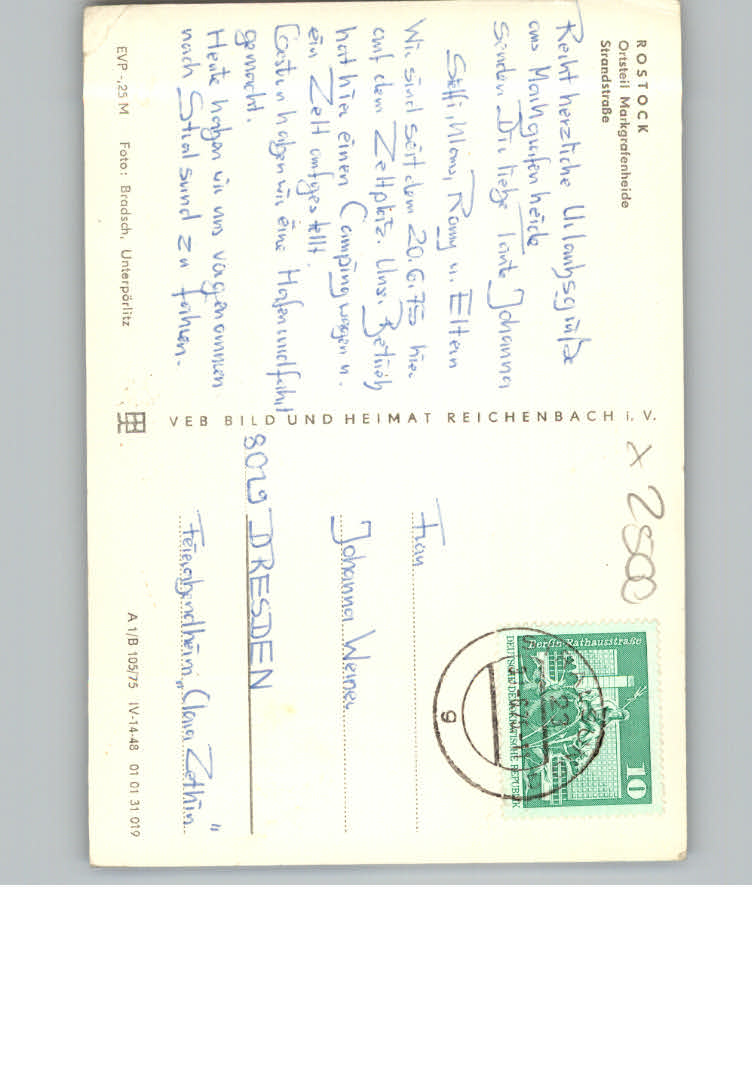 ROSTOCK
Ortsteil Markgrafenheide
Strandstraße
Recht herzliche Urlaubsgrüße
aus Markgrafenheide
senden Dir liebe Tante Johanna
Steffi, Romy u. Eltern
Wir sind seit dem 20.6.75 hier
auf dem Zeltplatz. Unser Betrieb
hat hier einen Campingwagen u.
ein Zelt aufgestellt.
Gestern haben wir eine Hafenrundfahrt
gemacht.
Heute haben wir uns vorgenommen
nach Stralsund zu fahren.
EVP -,25 M Foto: Bradsch, Unterpörlitz
VEB BILD UND HEIMAT REICHENBACH i. V.
x 2500
Berlin, Rathausstraße
10
DEUTSCHE DEMOKRATISCHE REPUBLIK
g
Frau
Johanna Weiner
8029 DRESDEN
Feierabendheim „Clara Zetkin"
A 1/B 105/75 IV-14-48 01 01 31 019